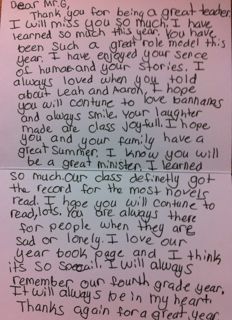 Dear Mr. G,
Thank you for being a great teacher.
I will miss you so much. I have
learned so much this year. You have
been such a great role model this
year. I have enjoyed your sence
of humor and your stories. I
always loved when you told
about Leah and Aaron. I hope
you will contune to love bannanas
and always smile. Your laughter
made are class joyfull. I hope
you and your family have a
great Summer. I know you will
be a great minister. I learned
so much. Our class definetly got
the record for the most novels
read. I hope you will contune to
read, lots. You are always there
for people when they are
sad or lonely. I love our
year book page and I think
its so special. I will always
remember our fourth grade year.
It will always be in my heart.
Thanks again for a great year